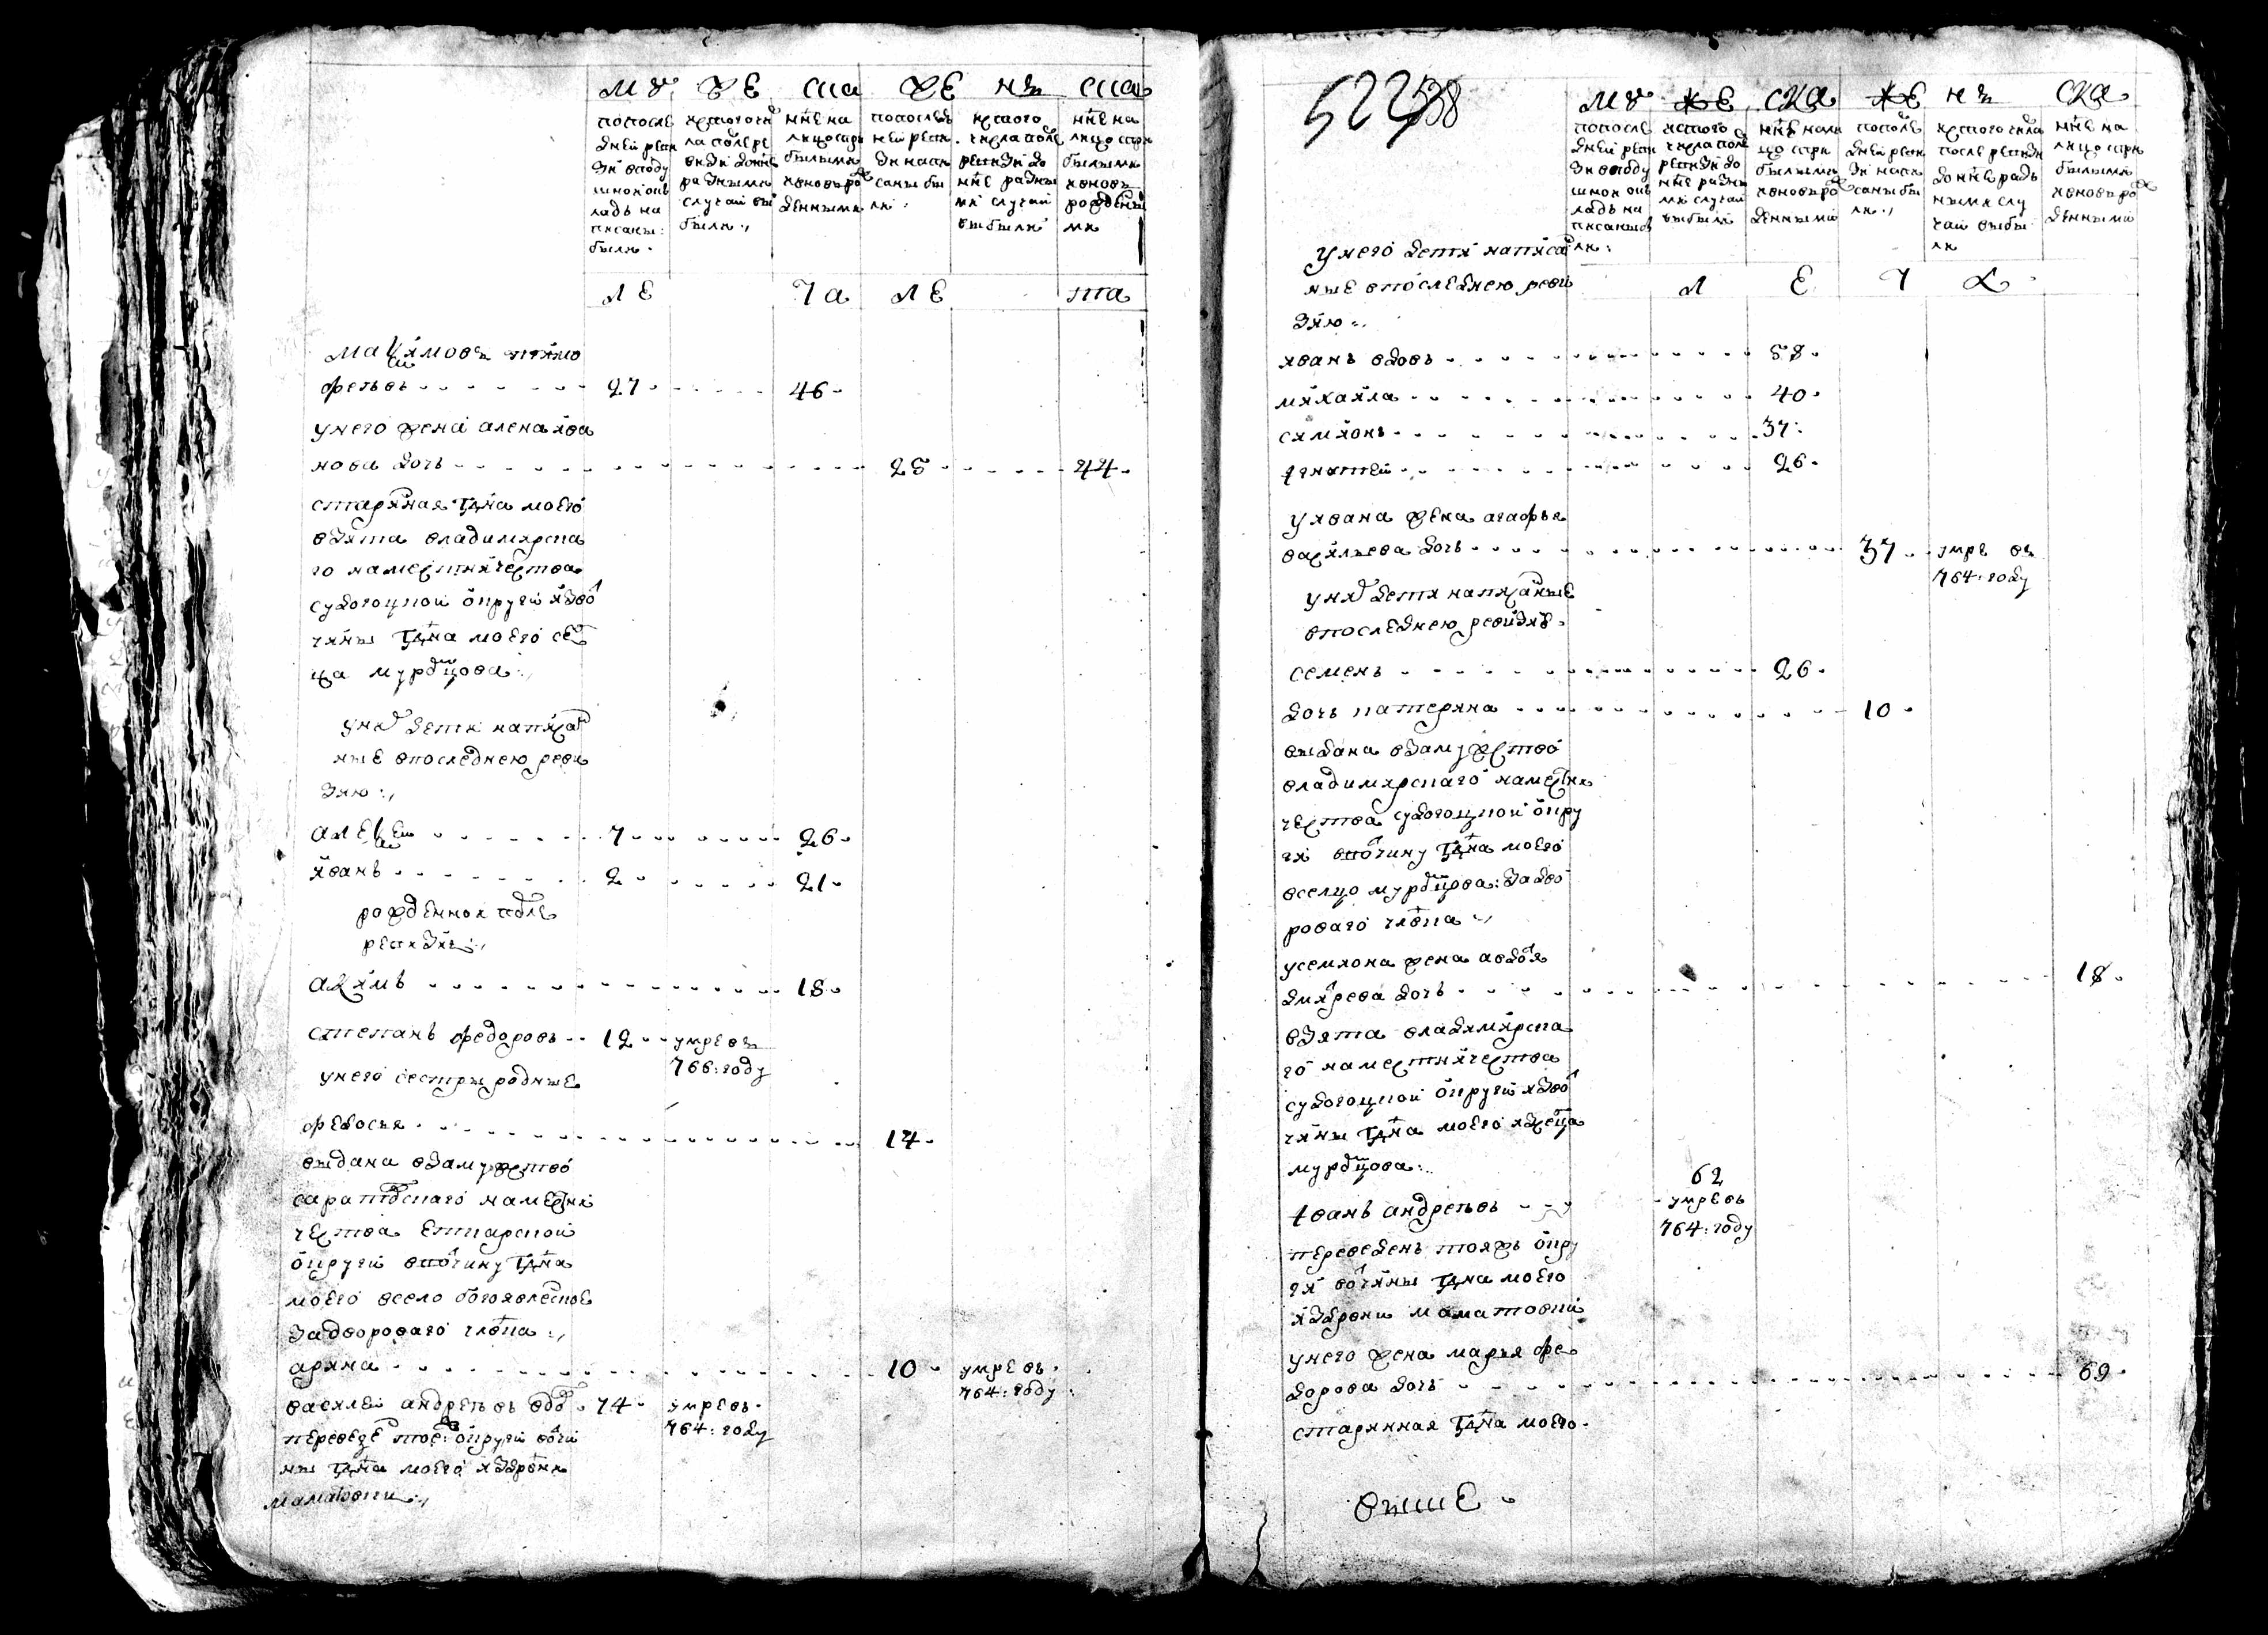 му же ска же нъ ска
попосле
дней реви
зи вподу
шной ок
ладъ на
писаны
были
истого чи
ла после ре
визи доне
разными
случаи вы
были
ныне на
лицо спри
былыми
ивновь ро
жденными
попослед
ней реви
зи напи
саны бы
ли
истого
числа после
ревизи до
ныне разны
ми случаи
выбыли
ныне на
лицо спри
былыми
ивновь
рожденны
ми
ле та ле та
максимовъ тимо
феевъ 27 46
унего жена алена ива
нова дочь 25 44
старинная гдна моего
взята владимирска
го наместничества
судогоцкой округи извот
чины гдна моего сел
ца мурдцова
уних дети написан
ные впоследнею реви
зию
алексей 7 26
иванъ 2 21
рожденной после
ревизии
акимъ 18
степанъ федоровъ 12 умре въ
766: году
унего сестры родные
федосья 14
выдана взамужство
саратовскаго наместни
чества
округи ввотчину гдна
моего всело богоявленское
задвороваго члвка
арина 10 умре въ
764: году
василей андреевъ вдов 74 умре въ
764: году
переведен тоеж округи вотчи
ны гдна моего издревни
маматовки
522 538
му же ска же нъ ска
попосле
дней реви
зи вподу
шной ок
ладъ на
писаны бы
ли
истого
числа после
ревизи до
ныне разны
ми случаи
выбыли
ныне нали
цо спри
былыми
ивновь ро
жденными
попосле
дней реви
зи напи
саны бы
ли
истого числа
после ревизи
доныне разъ
ными слу
чаи выбы
ли
ныне на
лицо спри
былыми
ивновь ро
жденными
л е т а
унего дети написан
ные впоследнею реви
зию
иванъ вдовъ 58
михайла 40
симионъ 37
игнатей 26
уивана жена агафья
васильева дочь 37 умре въ
764: году
уних дети написаные
впоследнею ревизию
семенъ 26
дочь катерина 10
выдана взамужство
владимирскаго наместни
чества судогоцкой окру
ги ввотчину гдна моего
вселцо мурдцова: задво
роваго члвка
усемиона жена авдотья
дмитрева дочь 18
взята владимирска
го наместничества
судогоцкой округи извот
чины гдна моего изселца
мурдцова
62
иванъ андреевъ умре въ
764: году
переведенъ тояжъ окру
ги вотчины гдна моего
издревни маматовки
унего жена марья фе
дорова дочь 69
старинная гдна моего
выше